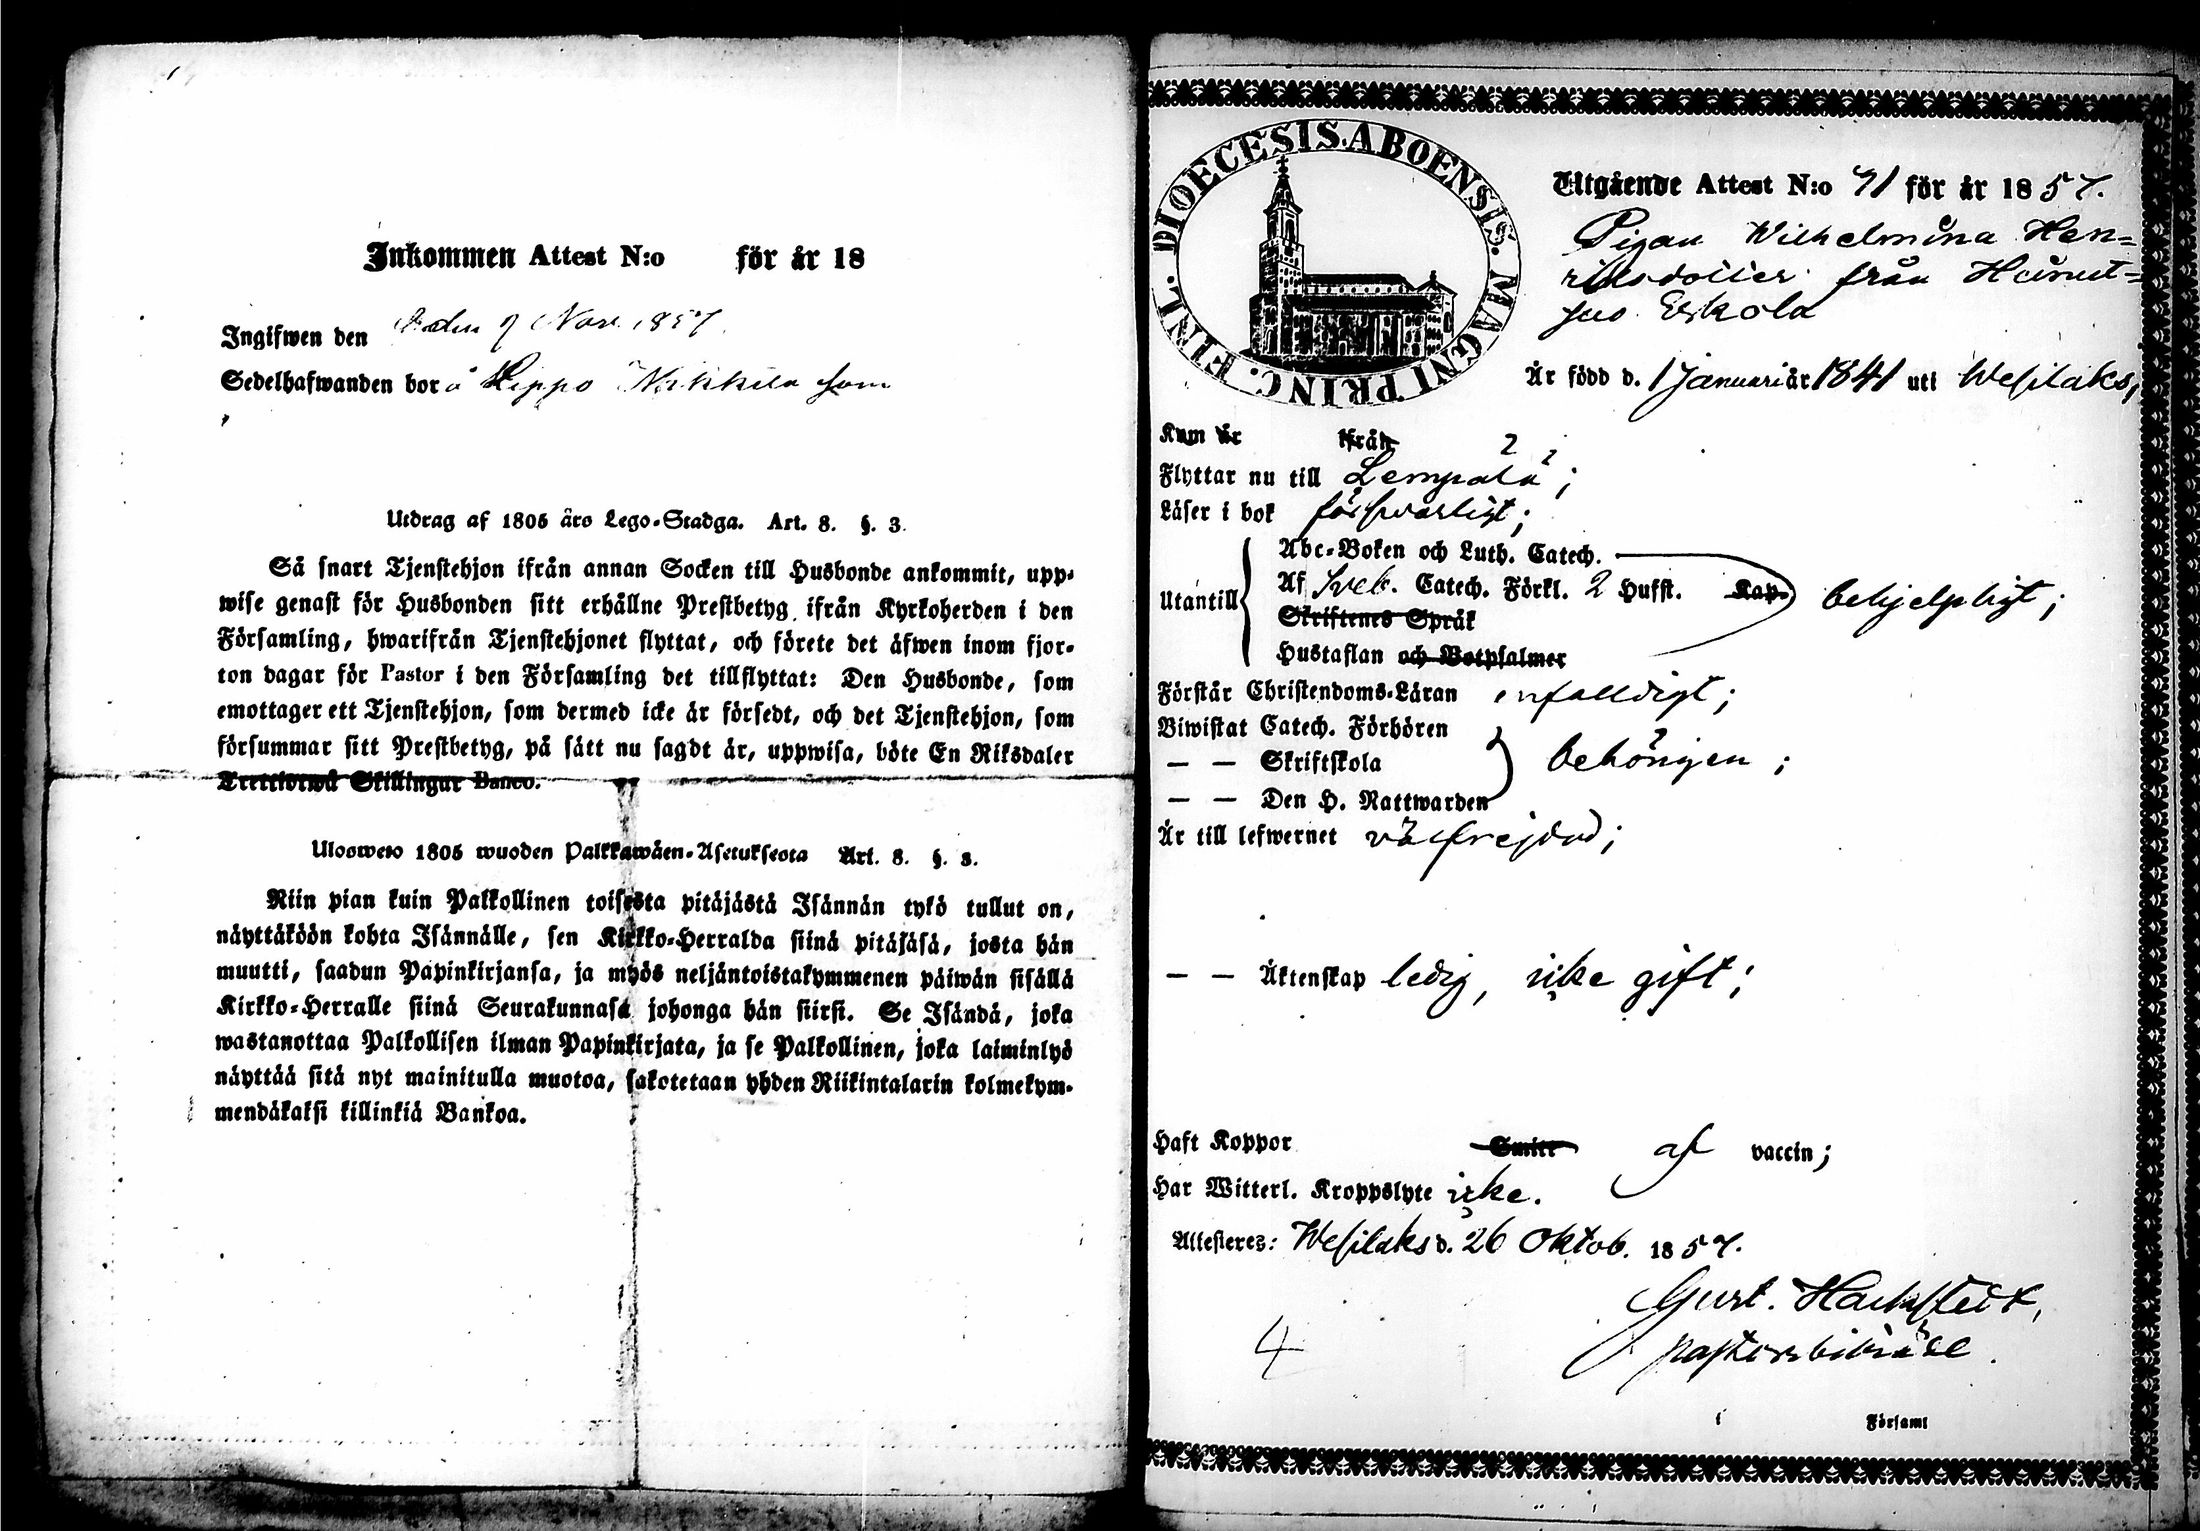 Inkommen Attest N:o för år 18
Ingifwen den den 7 Nov. 1857.
Sedelhafwanden bor å Lippo Mikkila som
Utdrag af 1805 års Lego-Stadga. Art. 8. §. 3.
Så snart Tjenstehjon ifrån annan Socken till Husbonde ankommit, upp-
wise genast för Husbonden sitt erhållne Prestbetyg ifrån Kyrkoherden i den
Församling, hwarifrån Tjenstehjonet flyttat, och förete det äfwen inom fjor-
ton dagar för Pastor i den Församling det tillflyttat: Den Husbonde, som
emottager ett Tjenstehjon, som dermed icke är försedt, och det Tjenstehjon, som
försummar sitt Prestbetyg, på sätt nu sagdt är, uppwisa, böte En Riksdaler
Trettiotwå Skillingar Banco.
Uloswето 1805 wuoden Palkkawäen-Asetuksesta Art. 8. §. 3.
Niin pian kuin Palkollinen toisesta pitäjästä Isännän tykö tullut on,
näyttäköön kohta Isännälle, sen Kirkko-Herralda siinä pitäjäsä, josta hän
muutti, saadun Papinkirjansa, ja myös neljäntoistakymmenen päiwän sisällä
Kirkko-Herralle siinä Seurakunnasa johonga hän siirsi. Se Isändä, joka
wastanottaa Palkollisen ilman Papinkirjata, ja se Palkollinen, joka laiminlyö
näyttää sitä nyt mainitulla muotoa, sakotetaan yhden Riikintalarin kolmekym-
mendäkaksi killinkiä Bankoa.
DIOECESIS.ABOENSIS. MAGNI PRINC. FINL.
Utgående Attest N:o 71 för år 1857.
Pigan Wilhelmina Hen-
riksdotter från
Eskola
Är född d. 1 Januari år 1841 uti Wesilaks,
Kom år ifrån
Flyttar nu till Lempälä;
Läser i bok försvarligt;
Utantill Abc-Boken och Luth. Catech.
Af Sveb. Catech. Förkl. 2 Hufst. Kap. behjelpligt;
Skriftenes Språk
Hustaflan och Botpsalmer
Förstår Christendoms-Läran enfaldigt;
Biwistat Catech. Förhören
— — Skriftskola behörigen;
— — Den H. Nattwarden
Är till lefwernet välfrejdad;
— — Äktenskap ledig, icke gift;
Haft Koppor Smitt af vaccin;
Har Witterl. Kroppslyte icke.
Attesteres: Wesilaks d. 26 Oktob. 1857.
Gust.
pastorsbiträde.
4
i Församl